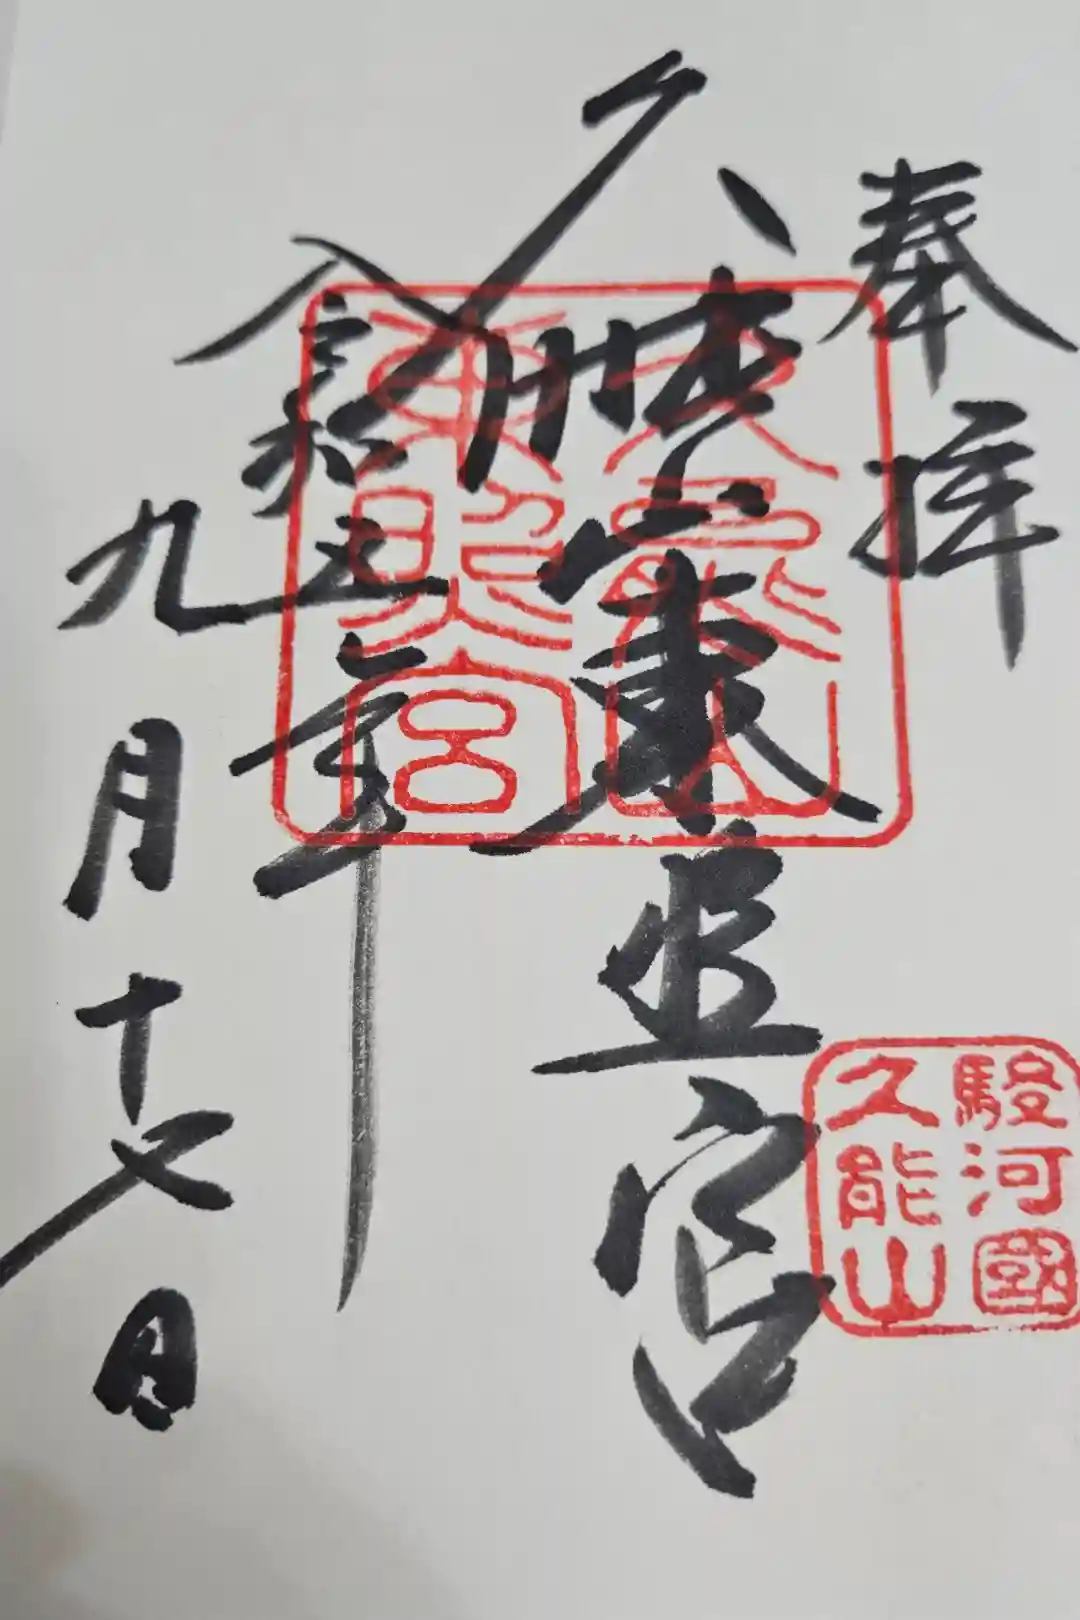 奉拝
駿河國
久能山
久能山東照宮
久能山
東照宮
令和五年
九月十七日